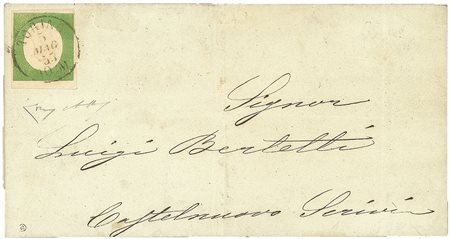 TORINO
5
MAG
Signor
Luigi Bertelli
Castelnuovo Scrivia